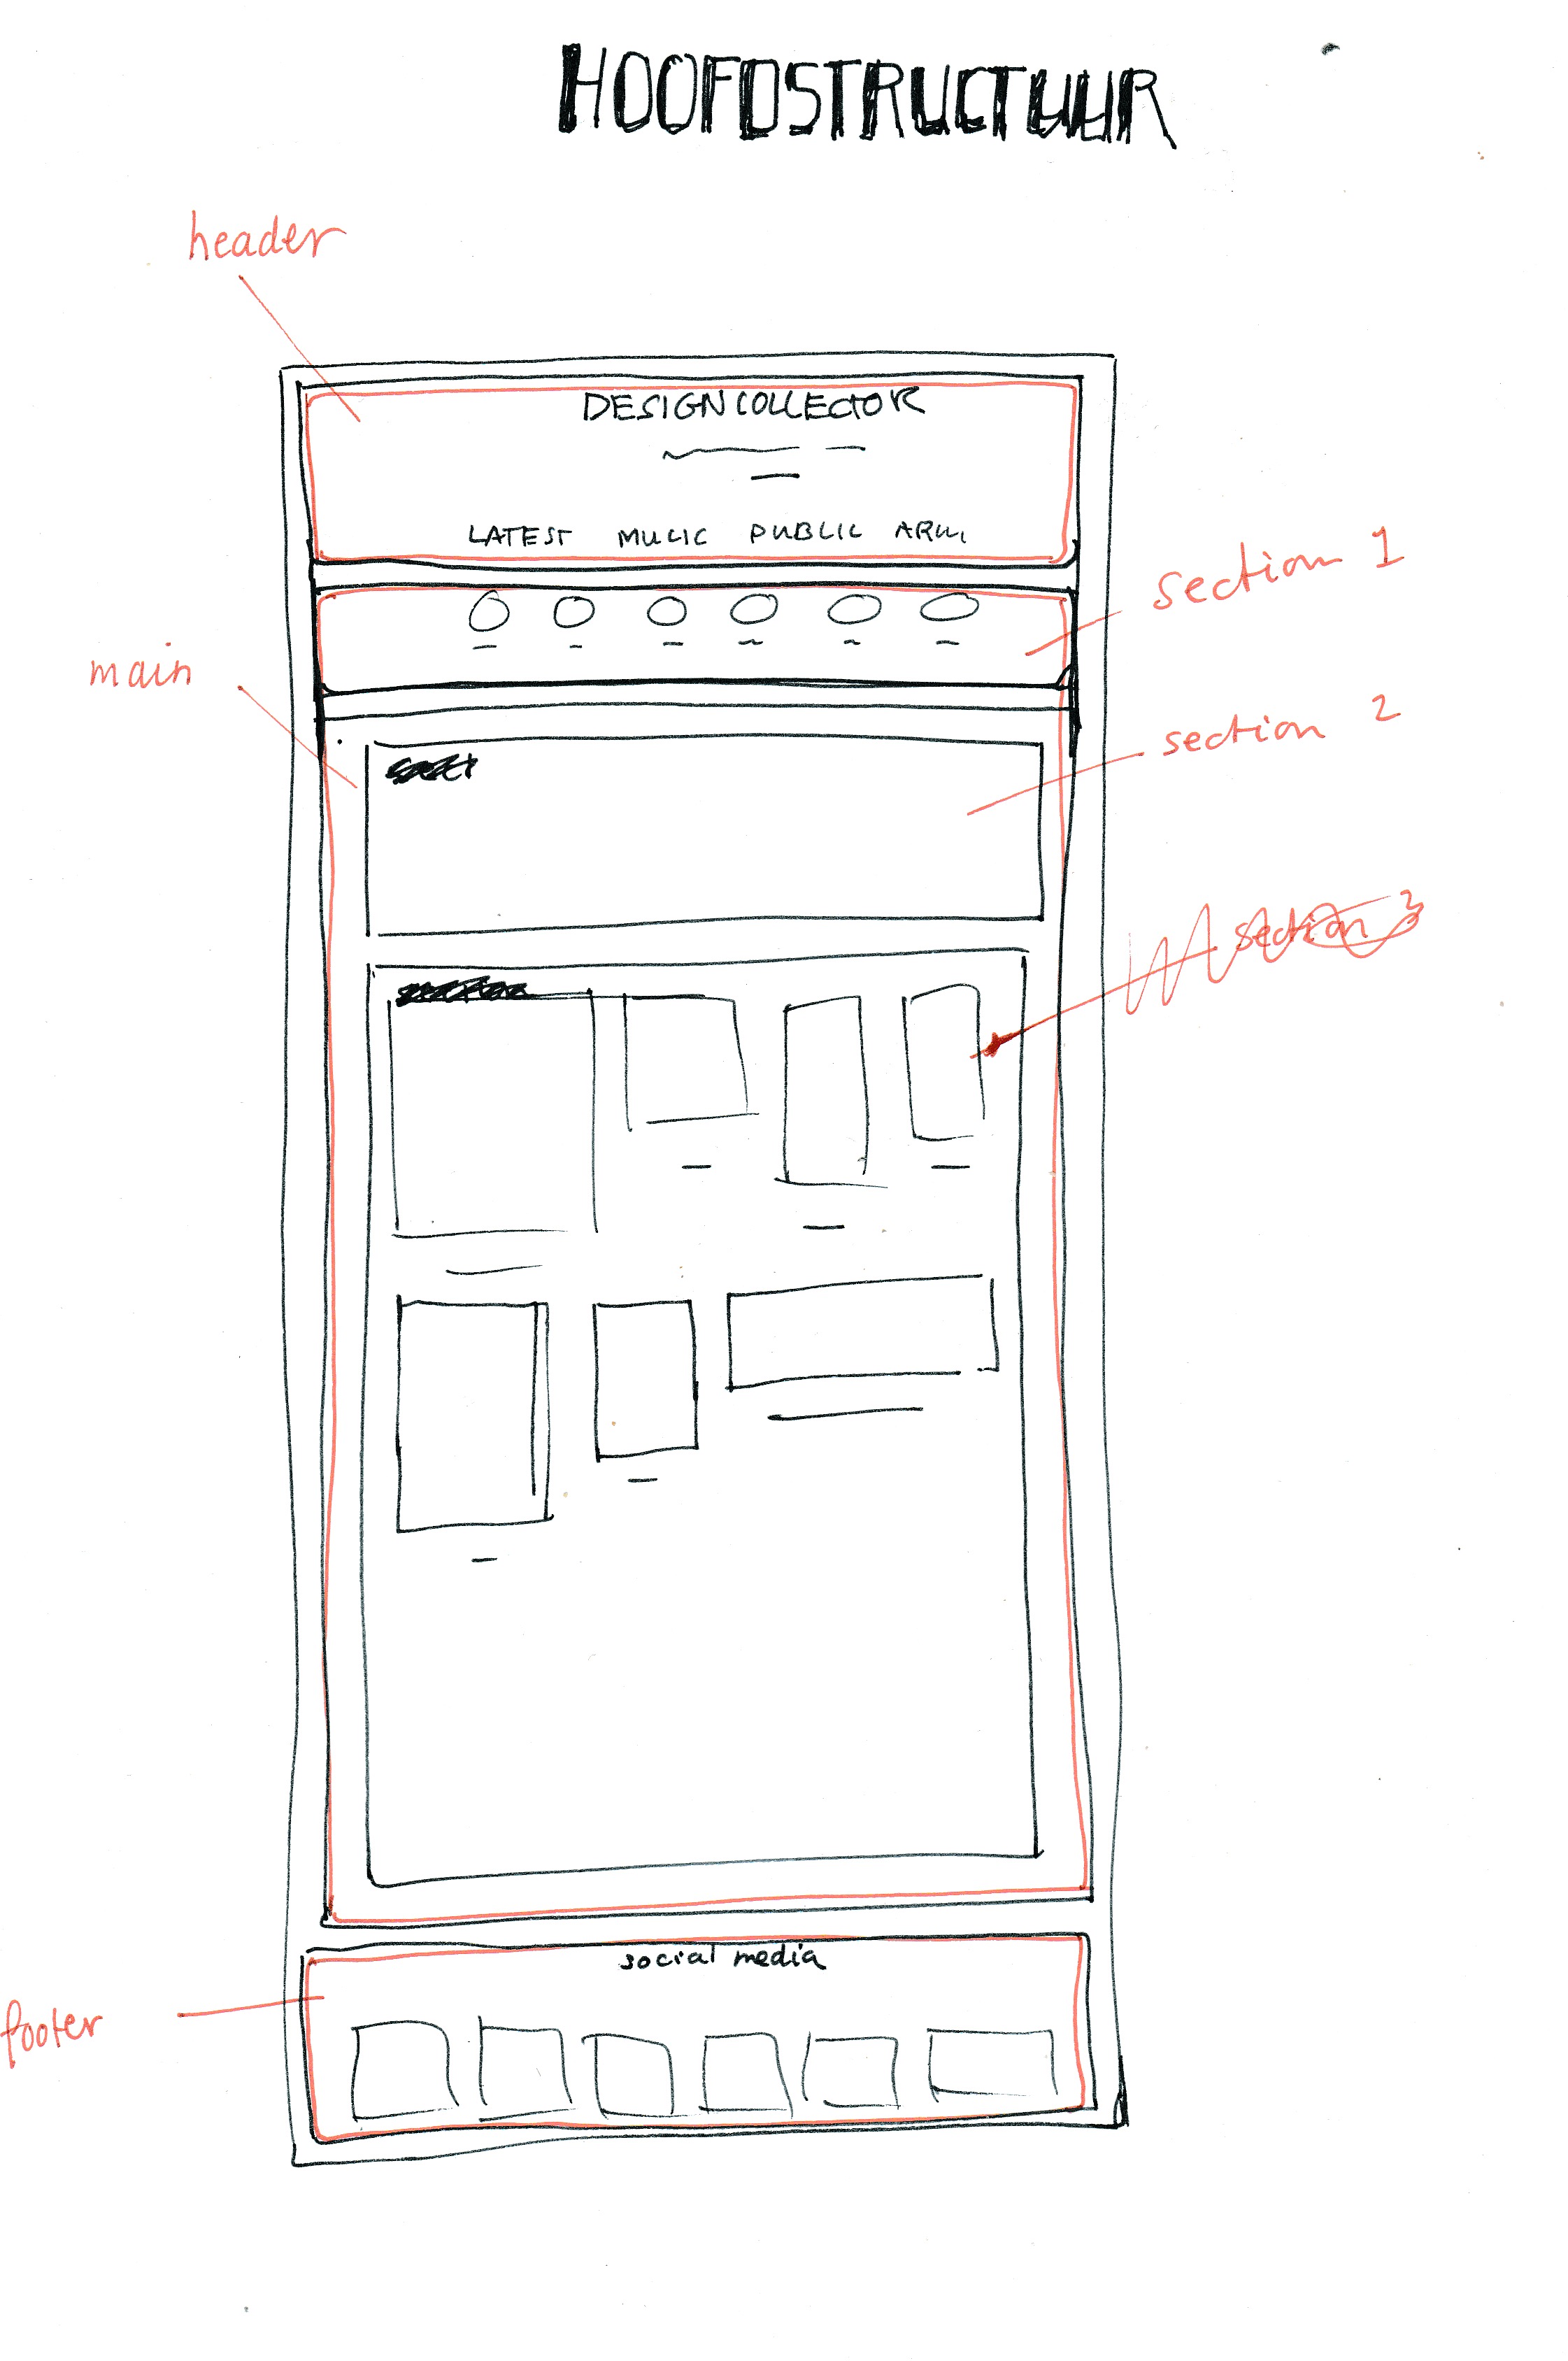 HOOFDSTRUCTUUR
header
DESIGNCOLLECTOR
LATEST MUCIC PUBLIC
section 1
main
section 2
section 3
social media
footer